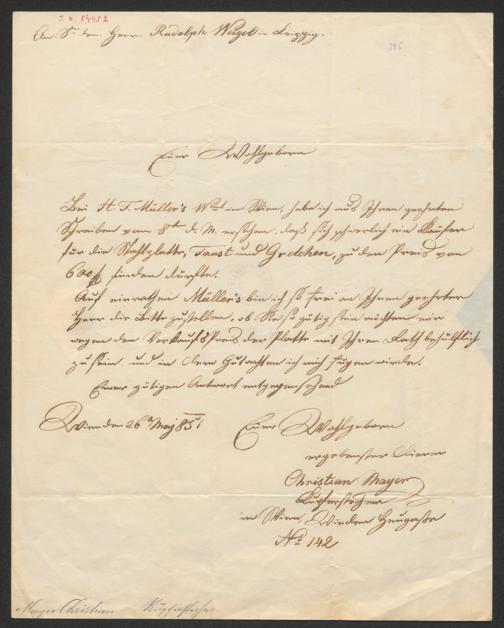 J. N. 84452
An Sr. dem Herrn Rudolph Weigel in Leipzig.
395
Euer Wohlgeboren
Bei H. F. Müller's Wwe in Wien, habe ich aus Ihren geehrten
Schreiben vom 8ten d. M. ersehen, daß sich schwerlich ein Käufer
für die Stahlplatte, Faust und Gretchen, zu dem Preis von
600 f finden dürfte.
Auf einrathen Müller's bin ich so frei an Ihnen geehrter
Herr die Bitte zu stellen, ob Sie so gütig sein möchten mir
wegen den Verkaufs Preis der Platte mit Ihren Rath behülflich
zu sein, und in dem Gutachten ich mich fügen würde.
Einer gütigen Antwort entgegensehend
Wien den 26ten Maj 851
Euer Wohlgeboren
ergebenster Diener
Christian Mayer
Kupferstecher
in Wien, Wieden Heugasse
No. 142
Mayer Christian Kupferstecher